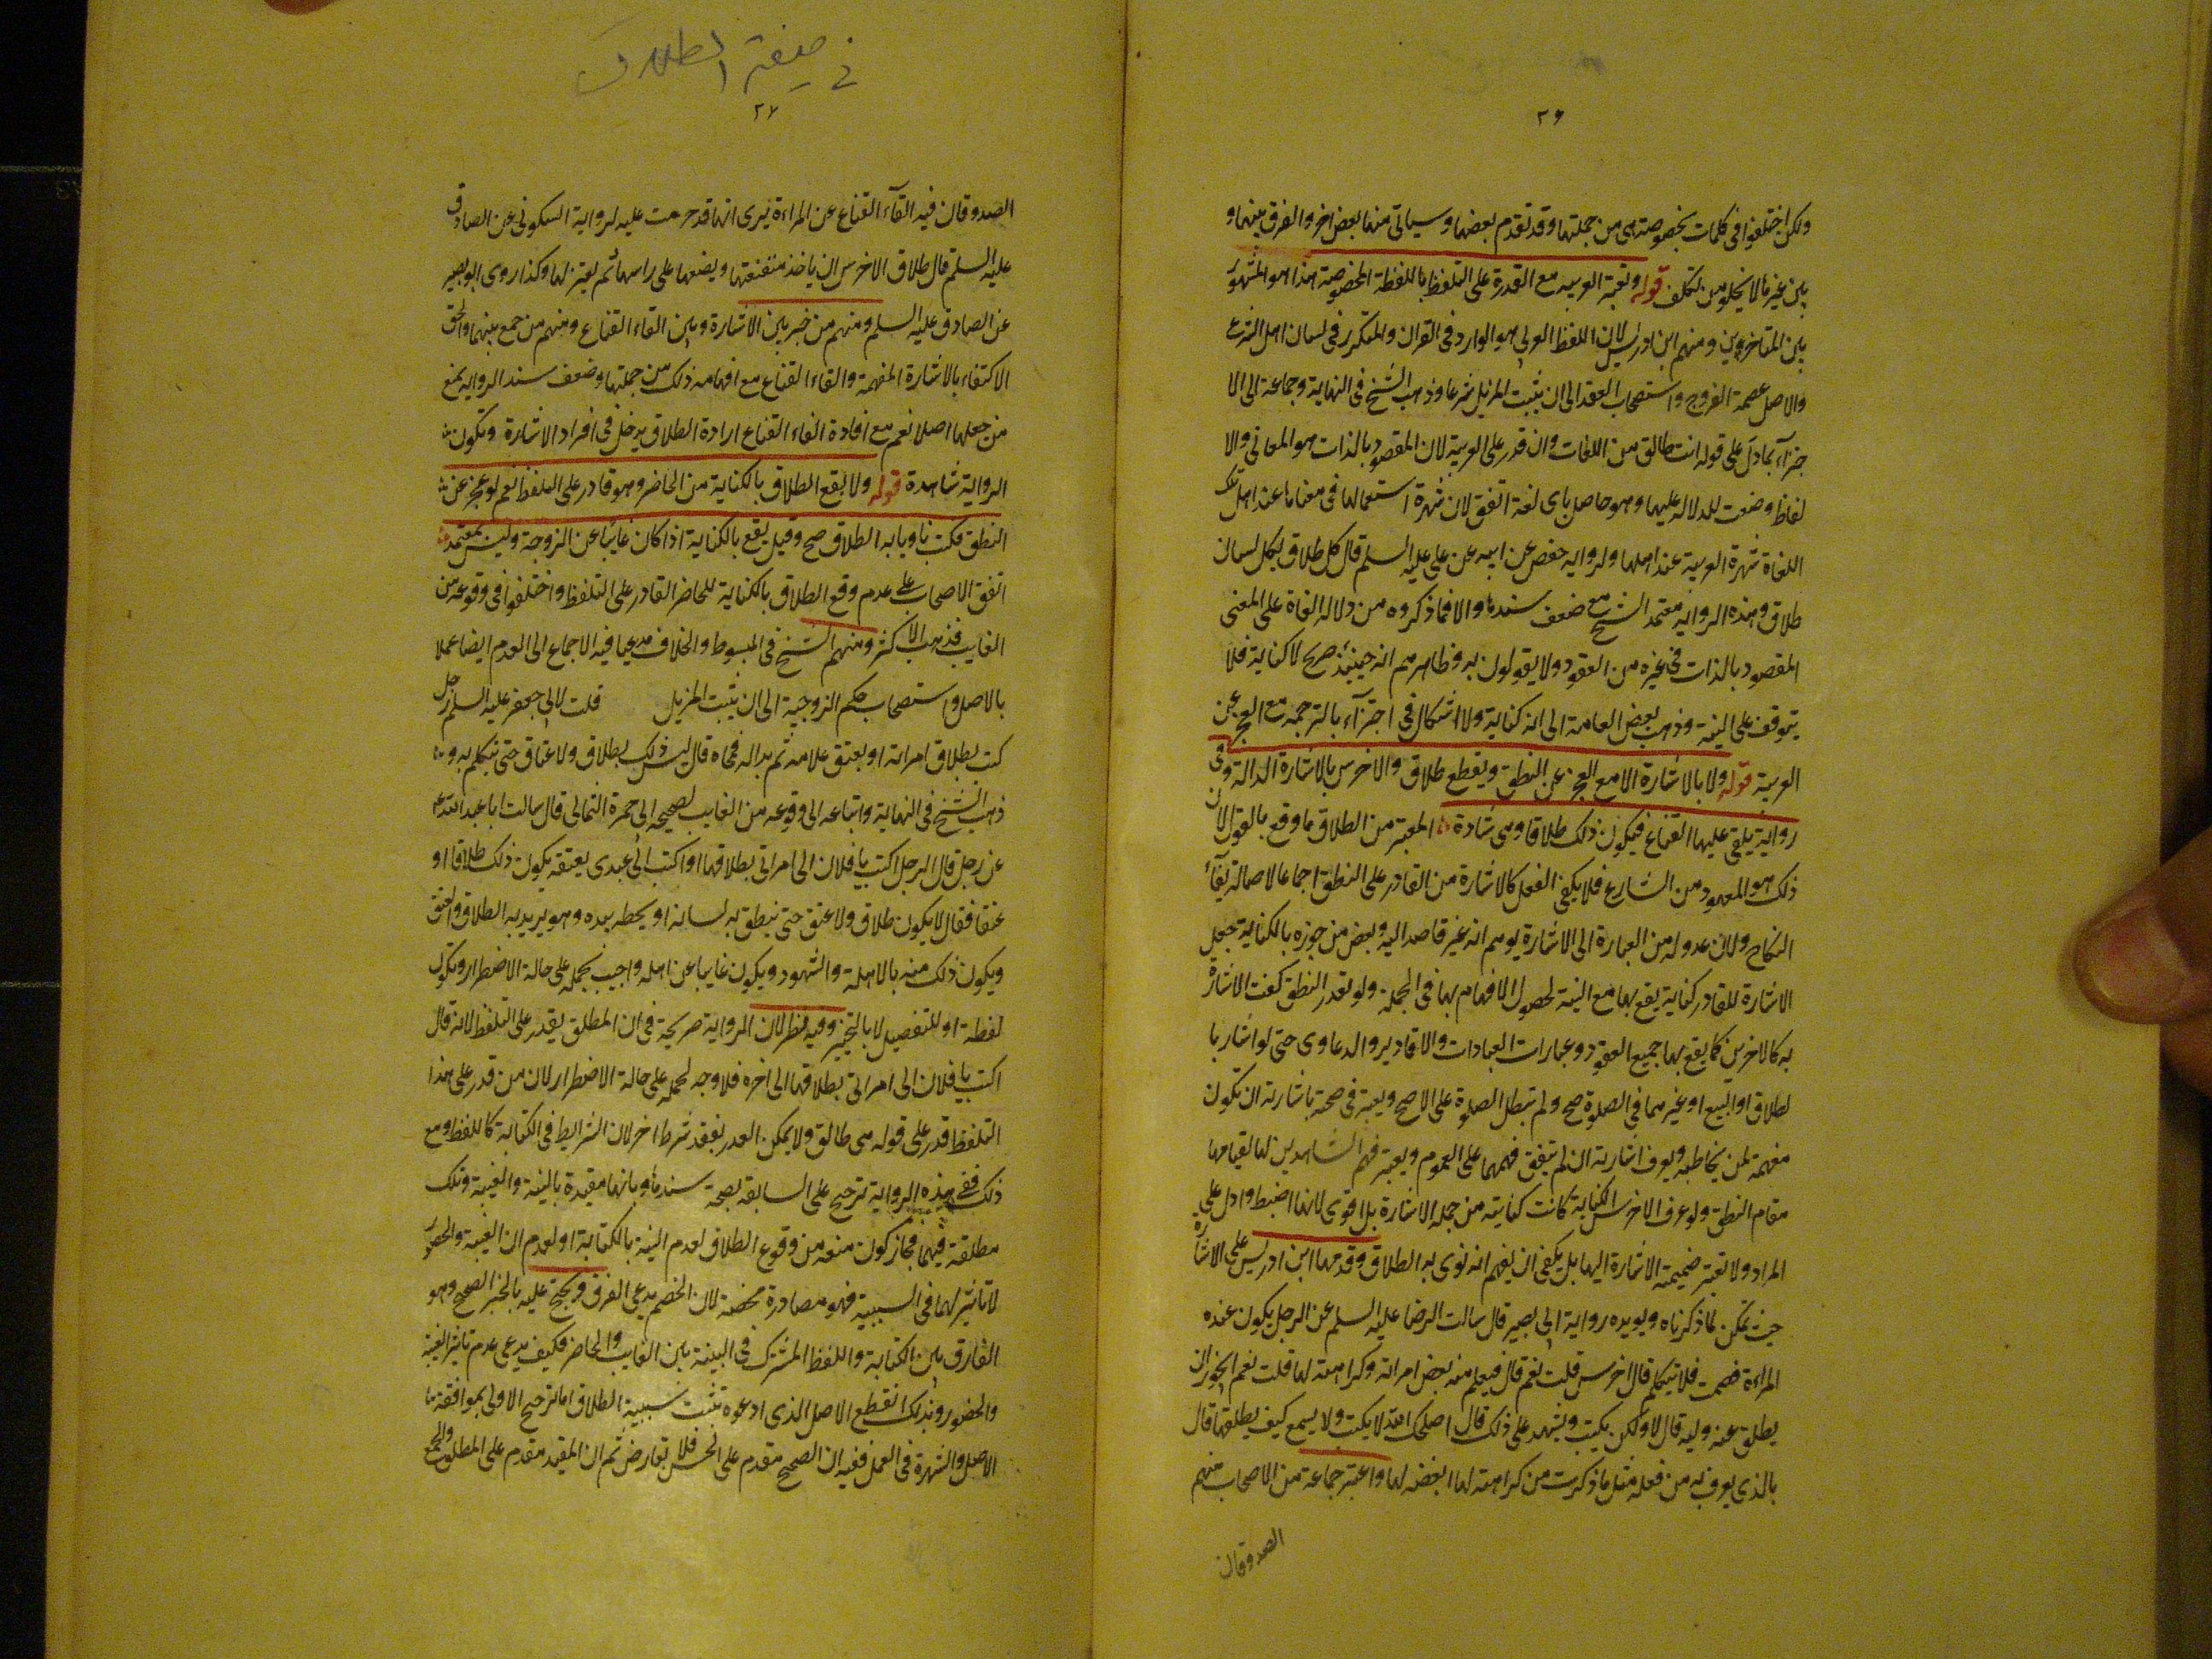 ٢٦
ولكن اختلفوا في كلمات بخصوصته هي من جملتها وقد تقدم بعضها وسياتي منها بعض اخر والفرق بينها و
بين غيرها لا يخلو من تكلف قوله وبغير العربيه مع القدرة على التلفظ باللفظة المخصوصة هذا هو المشهور
بين المتاخرين ومنهم ابن ادريس لان اللفظ العربي هو الوارد في القران والمتكرر في لسان اهل الشرع
والاصل عصمة الفروج واستصحاب العقد الى ان يثبت المزيل شرعا وذهب الشيخ في النهاية وجماعة الى الا
جتزآء بما دل على قوله انت طالق من اللغات وان قدر على العربية لان المقصود بالذات هو المعاني والا
لفاظ وضعت للدلاله عليها وهو حاصل باى لغة اتفق لان شهرة استعمالها في معناها عند اهل تلك
اللغة شهرة العربية عند اهلها ولروايه حفص عن ابيه عن على عليه السلم قال كل طلاق بكل لسان
طلاق وهذه الروايه معتمد الشيخ مع ضعف سندها والا فما ذكروه من دلاله اللغة على المعنى
المقصود بالذات في غيره من العقود ولا يقولون به وظاهرهم انه حينئذ صريح لا كناية فلا
يتوقف على النية وذهب بعض العامة الى انه كناية ولا اشكال في اجتزآء بالترجمه مع العجز عن
العربية قوله ولا بالاشارة الا مع العجز عن النطق ويقع طلاق والاخرس بالاشارة الدالة وفى
رواية يلقى عليها القناع فيكون ذلك طلاقا وهى شاذة المعتبر من الطلاق ما وقع بالقول لان
ذلك هو المعهود من الشارع فلا يكفى الفعل كالاشارة من القادر على النطق اجماعا لاصالة بقآء
النكاح ولان عدوله من العبارة الى الاشارة يوهم انه غير قاصد اليه وبعض من جوزه بالكناية تجعل
الاشارة للقادر كناية يقع بها مع النية لحصول الافهام بها في الجملة ولو تعذر النطق كفت الاشارة
به كالاخرس كما يقع بها جميع العقود وعبارات العبادات والاقادير والدعاوى حتى لو اشار با
لطلاق او البيع او غيرهما في الصلوة صح ولم تبطل الصلوة على الاصح ويعتبر في صحة باشارته ان تكون
مفهمة لمن يخاطبه ويعرف اشارته ان لم يتفق فهمها على العموم ويعتبر فهم الشاهدين لها لقيامها
مقام النطق ولو عرف الاخرس الكناية كانت كنايته من جمله الاشارة بل اقوى لانها اضبط وادل على
المراد ولا تعتبر ضميمة الاشارة اليها بل يكفى ان يفهم انه نوى به الطلاق وقدمها ابن ادريس على الاشارة
حيث تمكن لما ذكرناه ويويده رواية ابى بصير قال سالت الرضا عليه السلم عن الرجل يكون عنده
المراءة فصمت فلا يتكلم قال اخرس قلت نعم قال فيعلم منه بعض امراته وكراهته لها قلت نعم ايجوز ان
يطلق عنه وليه قال لا ولكن يكتب ويشهد على ذلك قال اصلحك الله لا يكتب ولا يسمع كيف يطلقها قال
بالذى يعرف به من فعله مثل ما ذكرت من كراهته لها ابغضه لها واعتبر جماعة من الاصحاب منهم
الصدوقان
في صيغة الطلاق
٢٧
الصدوقان فيه القآء القناع عن المراءة يرى انها قد حرمت عليه لرواية السكونى عن الصادق
عليه السلم قال طلاق الاخرس ان ياخذ مقنعتها ويضعها على راسها ثم يعتزلها وكذا روى ابو بصير
عن الصادق عليه السلم ومنهم من خير بين الاشارة وبين القاء القناع ومنهم من جمع بينهما والحق
الاكتفاء بالاشارة المفهمة والقاء القناع مع افهامه ذلك من جملتها وضعف سند الروايه يمنع
من جعلها اصلا نعم مع افادة القاء القناع ارادة الطلاق يدخل في افراد الاشارة وتكون
الرواية شاهدة قوله ولا يقع الطلاق بالكناية من الحاضر وهو قادر على التلفظ نعم لو عجز عن
النطق فكتب ناويا به الطلاق صح وقيل يقع بالكناية اذا كان غايبا عن الزوجة وليس بمعتمد
اتفق الاصحاب على عدم وقع الطلاق بالكناية للحاضر القادر على التلفظ واختلفوا في وقوعه من
الغايب فذهب الاكثر ومنهم الشيخ في المبسوط والخلاف مدعيا فيه الاجماع الى العدم ايضا عملا
بالاصل واستصحاب حكم الزوجية الى ان يثبت المزيل قلت لابى جعفر عليه السلم رجل
كتب بطلاق امراته او بعتق غلامه ثم بدا له فمحاه قال ليس ذلك بطلاق ولا عتاق حتى يتكلم به و
ذهب الشيخ في النهاية واتباعه الى وقوعه من الغايب لصحيحه ابى حمزة الثمالى قال سالت ابا عبد الله
عن رجل قال الرجل اكتب يا فلان الى امراتى بطلاقها او اكتب الى عبدى بعتقه يكون ذلك طلاقا او
عتقا فقال لا يكون طلاق ولا عتق حتى ينطق به لسانه او يخطه بيده وهو يريد به الطلاق والعتق
ويكون ذلك منه بالاهلة والشهود ويكون غايبا عن اهله واجيب بحمله على حالة الاضطرار ويكون
لفظة او للتفصيل لا بالتخيير وفيه نظر لان الرواية صريحة في ان المطلق يقدر على التلفظ لانه قال
اكتب يا فلان الى امراتى بطلاقها الى اخره فلا وجه لحمله على حالة الاضطرار لان من قدر على هذا
التلفظ قدر على قوله هى طالق ولا يمكن العذر بفقد شرط اخر لان الشرايط في الكتابة كاللفظ ومع
ذلك ففى هذه الرواية ترجيح على السابقة بصحة سندها وبانها مقيدة بالنية والغيبة وتلك
مطلقة فيهما فجاز كون منعه من وقوع الطلاق لعدم النية بالكتابة او لعدم ان الغيبة والحضور
لا تاثير لهما في السببية فهو مصادرة محضة لان الخصم يدعى الفرق ويحتج عليه بالخبر الصحيح وهو
الفارق بين الكتابة واللفظ المشترك في البينة بين الغايب والحاضر فكيف يدعى عدم تاثير الغيبة
والحضور وبذلك انقطع الاصل الذى ادعوه تثبت سببية الطلاق اما ترجيح الاولى بموافقة
الاصل والشهرة في العمل ففيه ان الصحيح مقدم على الحسن فلا تعارض ثم ان المقيد مقدم على المطلق والجمع